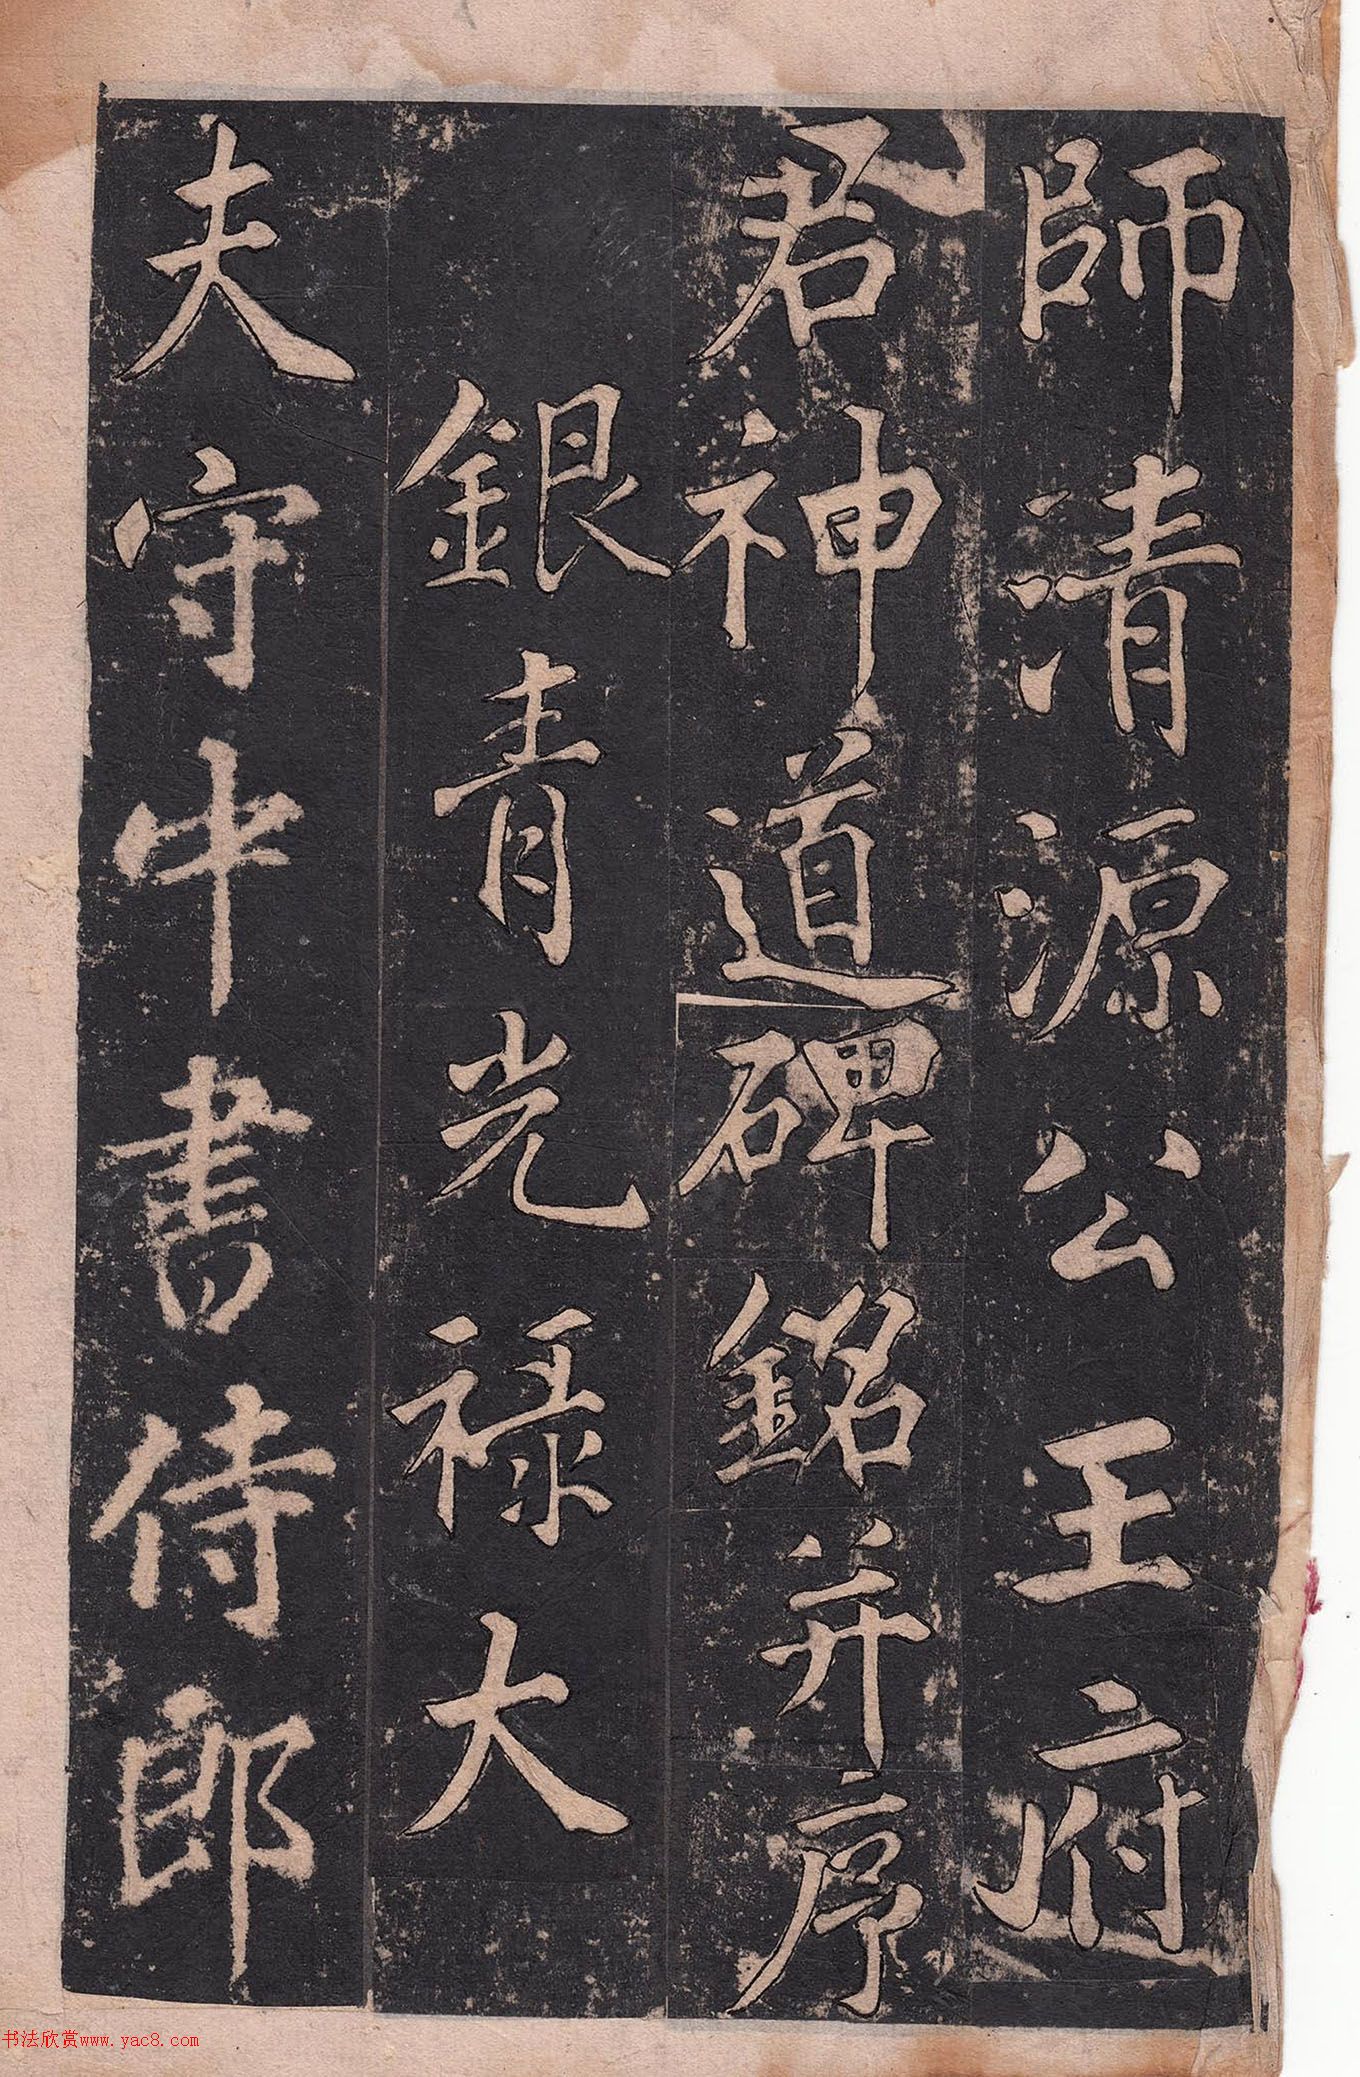 師清源公王府
君神道碑銘并序
銀青光祿大
夫守中書侍郎
书法欣赏www.yac8.com